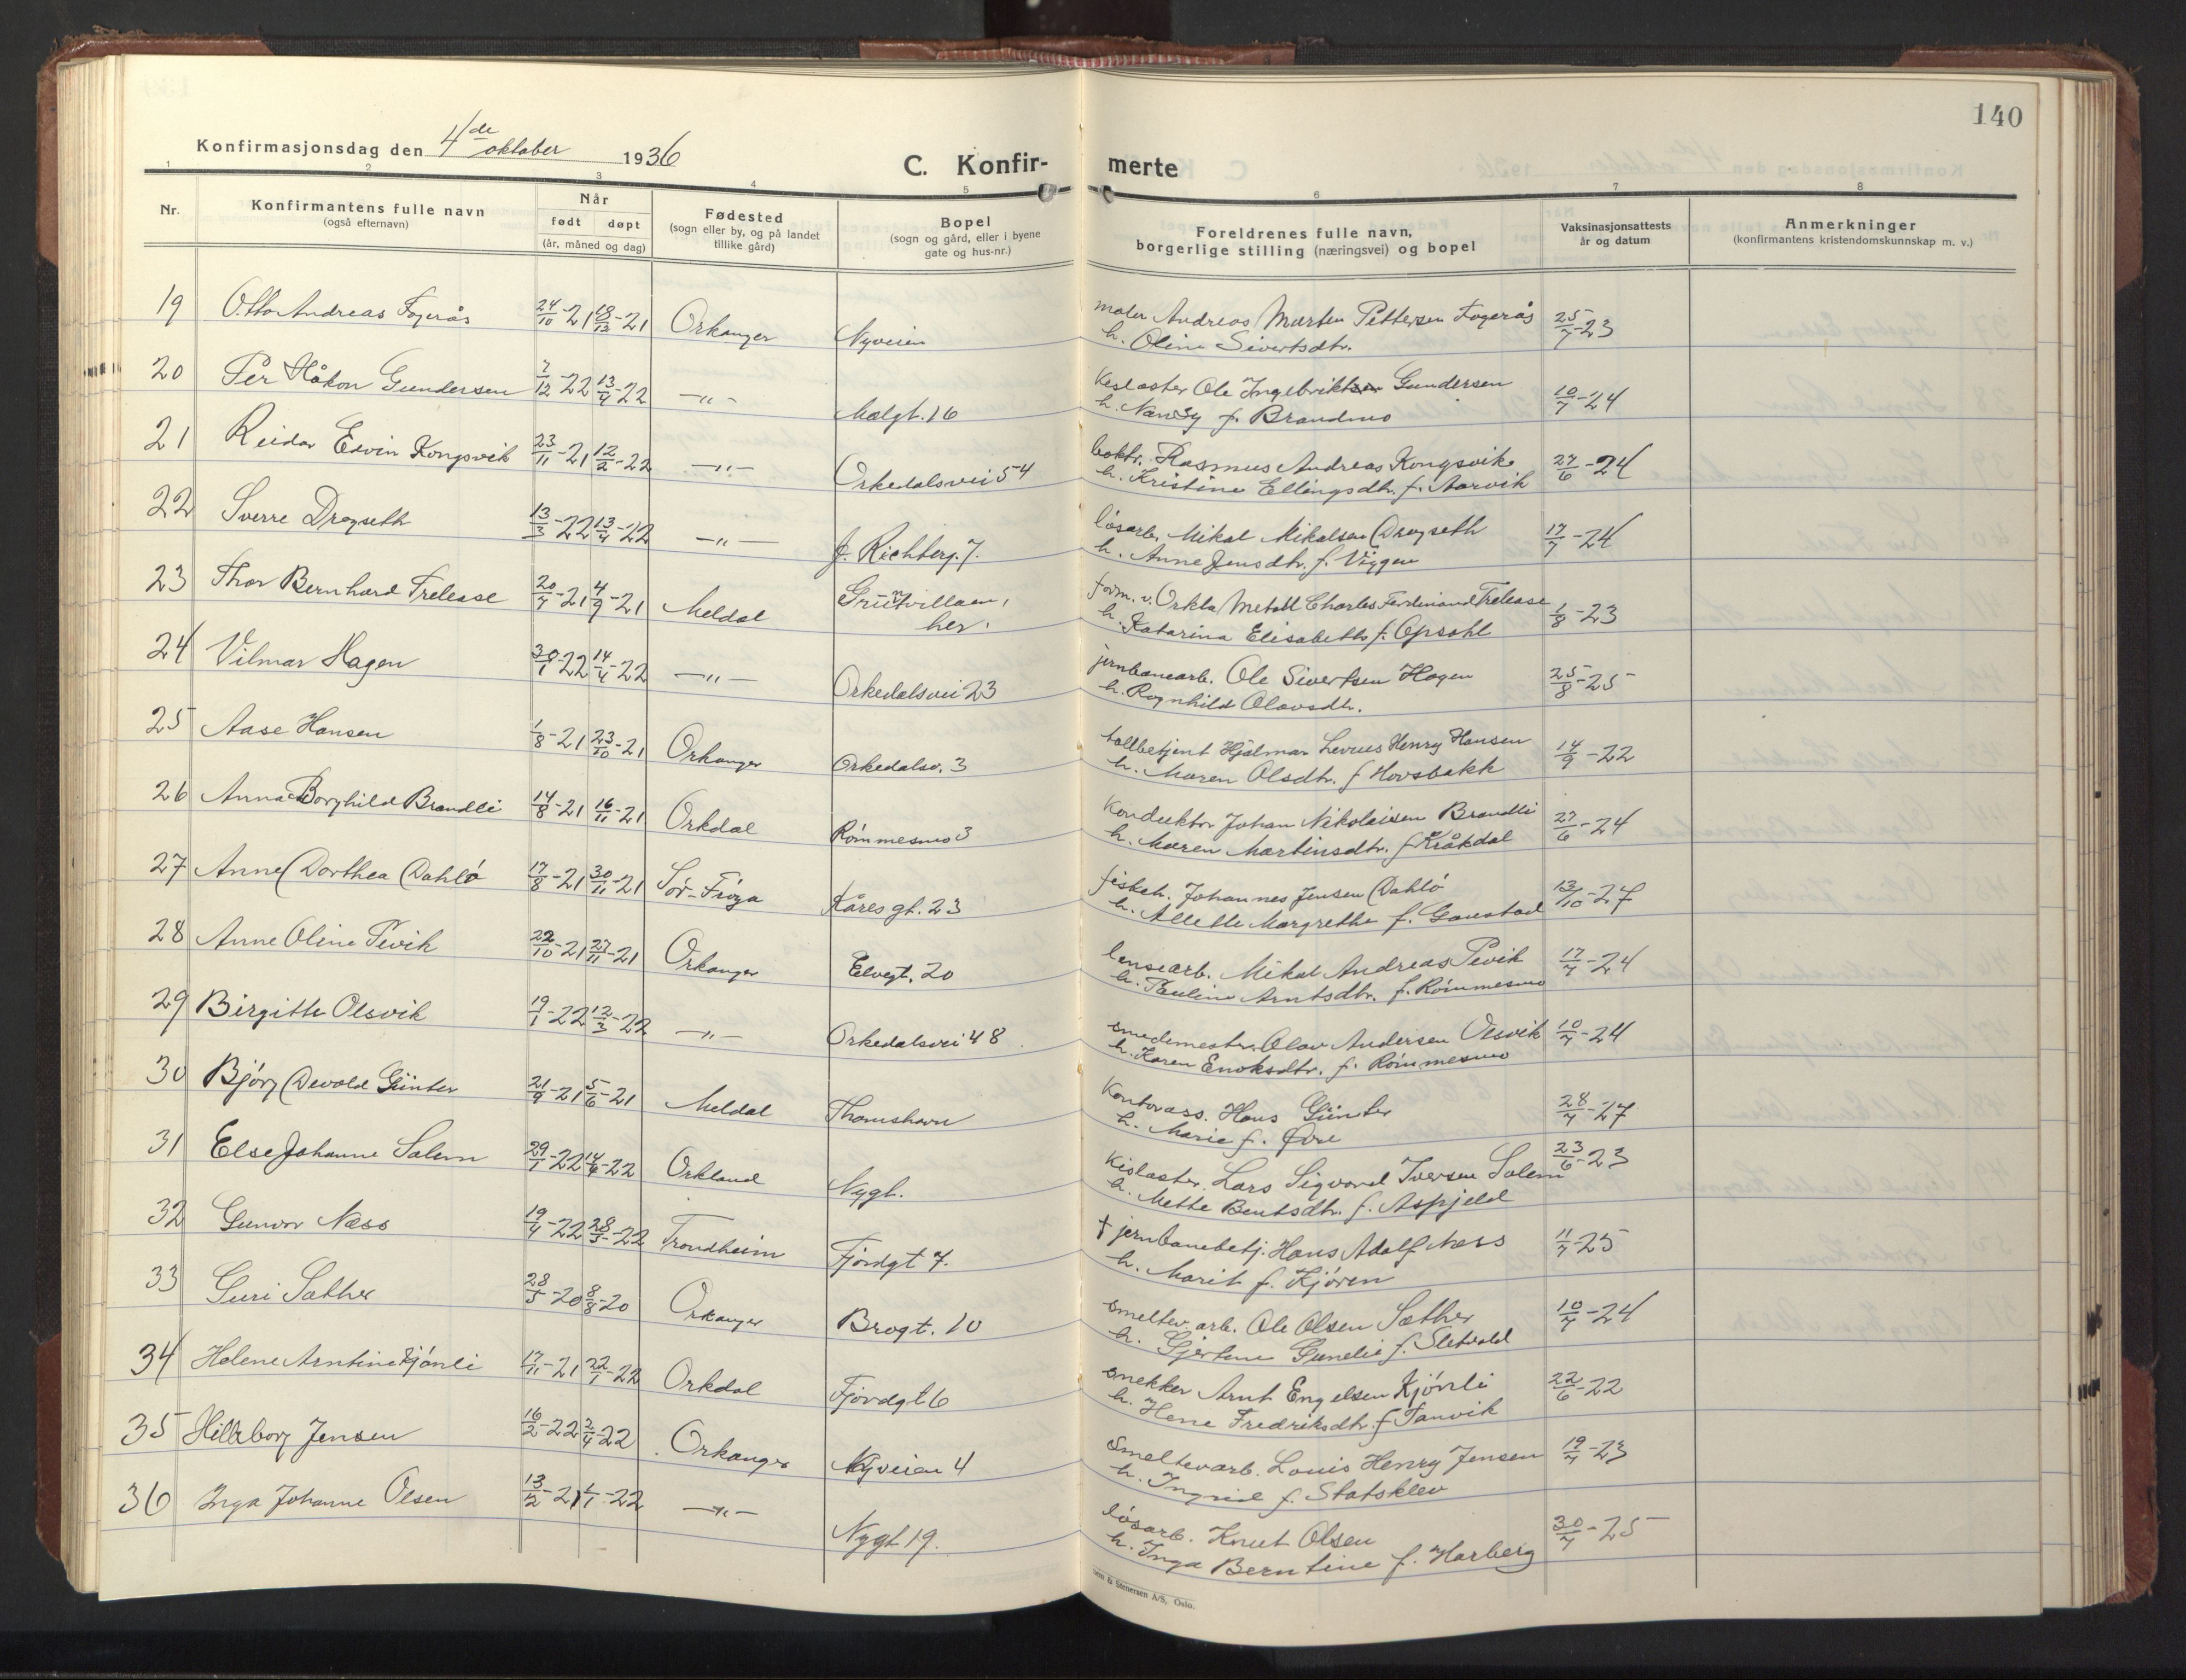 140
Konfirmasjonsdag den 4de oktober 1936
C. Konfir- merte
1 2 3 4 5 6 7 8
Nr.
Konfirmantens fulle navn
(også efternavn)
Når
født døpt
(år, måned og dag)
Fødested
(sogn eller by, og på landet
tillike gård)
Bopel
(sogn og gård, eller i byene
gate og hus-nr.)
Foreldrenes fulle navn,
borgerlige stilling (næringsvei) og bopel
Vaksinasjonsattests
år og datum
Anmerkninger
(konfirmantens kristendomskunnskap m. v.)
19 Otto Andreas Fagerås 24/10-21 18/12-21 Orkanger Nyveien maler Andreas Marten Pettersen Fagerås 25/7-23
h. Oline Sivertsdtr.
20 Per Håkon Gundersen 13/4-22 -"- Malgt. 16 Ole Gundersen 10/7-24
h. Nancy f. Brandmo
21 Reidar Edvin Kongsvik 23/11-21 12/2-22 -"- Orkedalsvei 54 baktr. Rasmus Andreas Kongsvik 27/6-24
h. Kristine Ellingsdtr. f. Aarvik
22 Sverre Dragseth 13/3-22 13/4-22 -"- J. Richberg. 7. løsarb. Mikal Mikalsen Dragseth 17/7-24
h. Anne Jensdtr. f. Viggen
23 Thor Bernhard Trelease 20/7-21 4/9-21 Meldal her. form. v. Orkla Metall Charles Ferdinand Trelease 1/8-23
h. Katarina Elisabeth f. Opsahl
24 Vilmar Hagen 30/1-22 14/4-22 -"- Orkedalsvei 23 jernbanearb. Ole Sivertsen Hagen 25/8-25
h. Ragnhild Olavsdtr.
25 Aase Hansen 1/8-21 23/10-21 Orkanger Orkedalsv. 3 tollbetjent Hjalmar Henry Hansen 14/9-22
h. Maren Olsdtr. f Hovsbakk
26 Anna Borghild Brandli 14/8-21 16/11-21 Orkdal Rømmesmo 3 Konduktør Johan Nikolaisen Brandli 27/6-24
h. Maren Martinsdtr. f Kråkdal
27 Anne Dorthea Dahlø 17/8-21 30/11-21 Sør-Frøya Kåresgt. 23 fiskeh. Johannes Jensen Dahlø 13/10-27
h. Allette Margrethe f. Gaustad
28 Anne Oline Pevik 22/10-21 27/11-21 Orkanger Elvegt. 20 lensearb. Mikal Andreas Pevik 17/7-24
h. Pauline Arntsdtr. f. Rømmesmo
29 Birgitte Olsvik 19/1-22 12/3-22 -"- Orkedalsvei 48 smedmester Olav Andersen Olsvik 10/7-24
h. Karen Enoksdtr. f. Rømmesmo
30 Bjørg Devold Günter 21/4-21 5/6-21 Meldal Thamshavn Kontorass. Hans Günter 28/7-27
h. Marie f. Øvre
31 Else Johanne Solem 29/1-22 14/4-22 Orkland Nygt. Kislaster. Lars Sigvard Iversen Solem 23/6-23
h. Mette Bentsdtr. f. Aspjeld
32 Gunvor Næss 19/4-22 28/5-22 Trondheim Fjordgt 7. † jernbanebetj. Hans Adolf Næss 11/7-25
h. Marit f. Kjøren
33 Guri Sæther 28/5-20 8/8-20 Orkanger Brogt. 10 smeltev. arb. Ole Olsen Sæther 10/7-24
h. Gjertine Gunelie f. Sletvold
34 Helene Arntine Kjønli 17/11-21 22/1-22 Orkdal Fjordgt 6 snekker Arnt Engelsen Kjønli 22/6-22
h. Hene Fredriksdtr. f Tanvik
35 Hillborg Jensen 16/2-22 2/4-22 Orkanger Nyveien 4 Smeltevarb. Louis Henry Jensen 19/7-23
h. Ingrid f. Slatsklev
36 Inga Johanne Olsen 13/12-21 1/1-22 -"- Nygt 19. løsarb. Knut Olsen 30/7-25
h. Inga Berntine f. Harberg
& Stenersen A/S, Oslo.